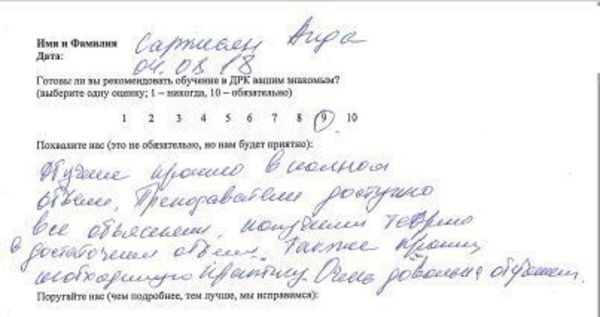 Имя и Фамилия Саржисян Аида
Дата: 04.08.18
Готовы ли вы рекомендовать обучение в ДРК вашим знакомым?
(выберите одну оценку; 1 – никогда, 10 – обязательно)
1 2 3 4 5 6 7 8 9 10
Похвалите нас (это не обязательно, но нам будет приятно):
Обучение прошло в полном
объеме. Преподаватели доступно
все объяснили, получили теорию
в достаточном объеме. Также прошли
необходимую практику. Очень довольна обучением.
Поругайте нас (чем подробнее, тем лучше, мы исправимся):